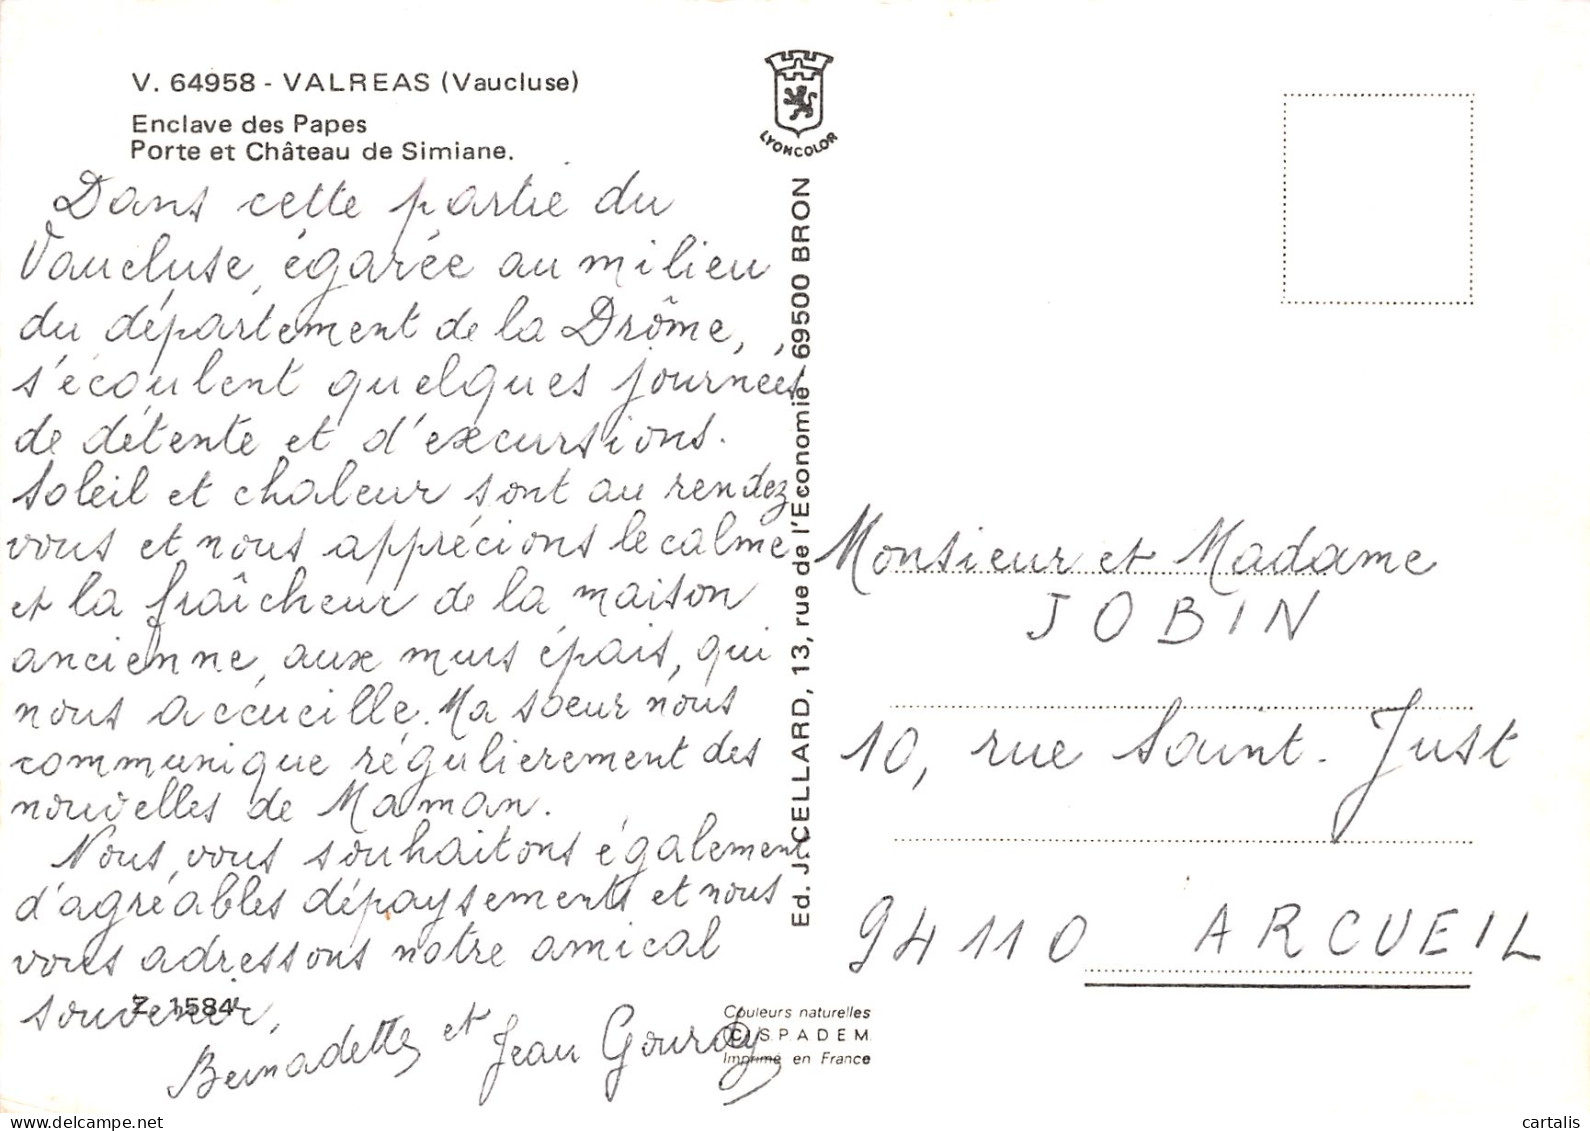 V. 64958 - VALREAS (Vaucluse)
Enclave des Papes
Porte et Château de Simiane.
Dans cette partie du
Vaucluse, égarée au milieu
du département de la Drôme,
s'écoulent quelques journées
de détente et d'excursions.
Soleil et chaleur sont au rendez
vous et nous apprécions le calme
et la fraîcheur de la maison
ancienne, aux murs épais, qui
nous accueille. Ma soeur nous
communique régulierement des
nouvelles de Maman.
Nous vous souhaitons également
d'agréables dépaysements et nous
vous adressons notre amical
souvenir,
Bernadette et Jean Gourdy
Z 1584
LYONCOLOR
Ed. J. CELLARD, 13, rue de l'Economie 69500 BRON
Couleurs naturelles
© S.P.A.D.E.M.
Imprimé en France
Monsieur et Madame
JOBIN
10, rue Saint-Just
94110 ARCUEIL
cartalis